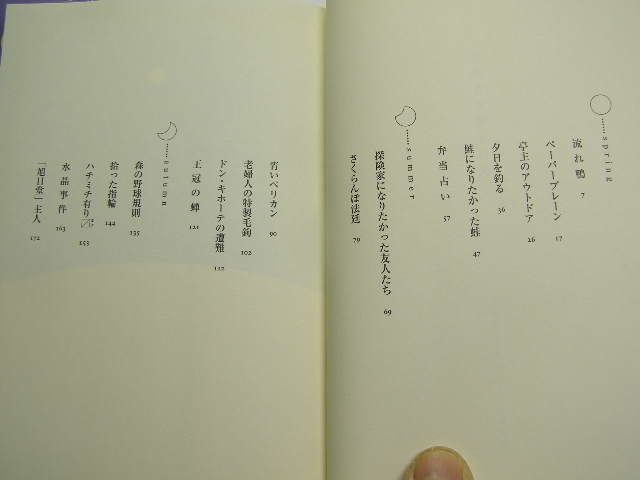 ……spring
流れ鴨 7
ペーパープレーン 17
亭主のアウトドア 26
夕日を釣る 36
鮭になりたかった蛙 47
弁当占い 57
……summer
探険家になりたかった友人たち 69
さくらんぼ法廷 79
青いペリカン 90
老婦人の特製毛鉤 102
ドン・キホーテの遭難 112
王冠の蝉 121
……autumn
森の野球規則 135
拾った指輪 144
ハチミチ有り〼 153
水晶事件 163
「旭日堂」主人 172